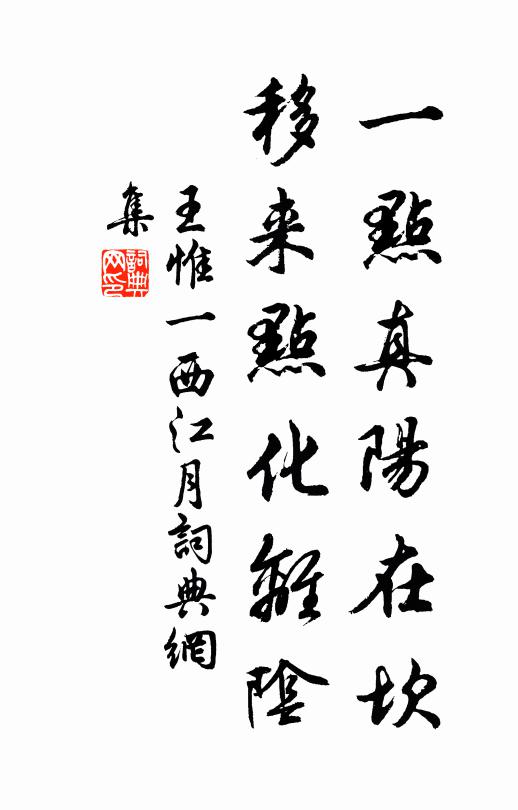 一點真陽在坎
移来點化離陰
王惟一西江月詞典網
集
詞典网印